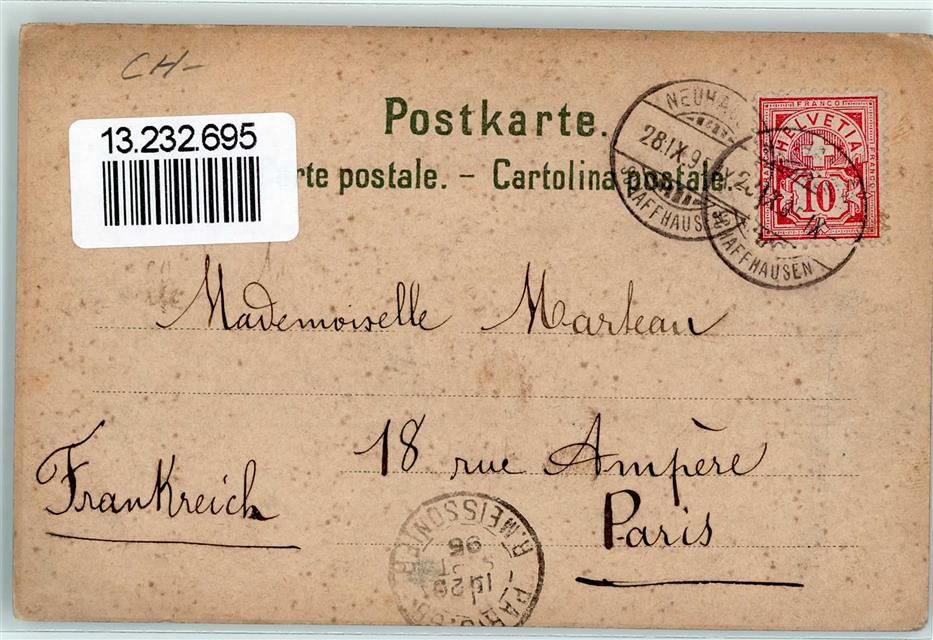 CH-
13.232.695
Postkarte.
rte postale. – Cartolina postale.
NEUHA
28.IX.9
SCHAFFHAUSEN
FRANCO
HELVETIA
FRANCO
10
SCHAFFHAUSEN
Mademoiselle Marteau
18 rue Ampère
Frankreich
Paris
R. MEISSONIER
96
PARIS